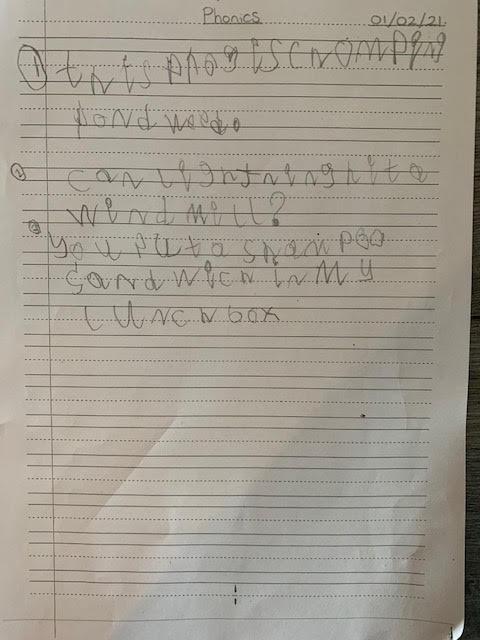 Phonics 01/02/21
1 this frog is chomping
pond weed.
2 can lightning hit a
wind mill?
3 you put a shampoo
sandwich in my
lunch box